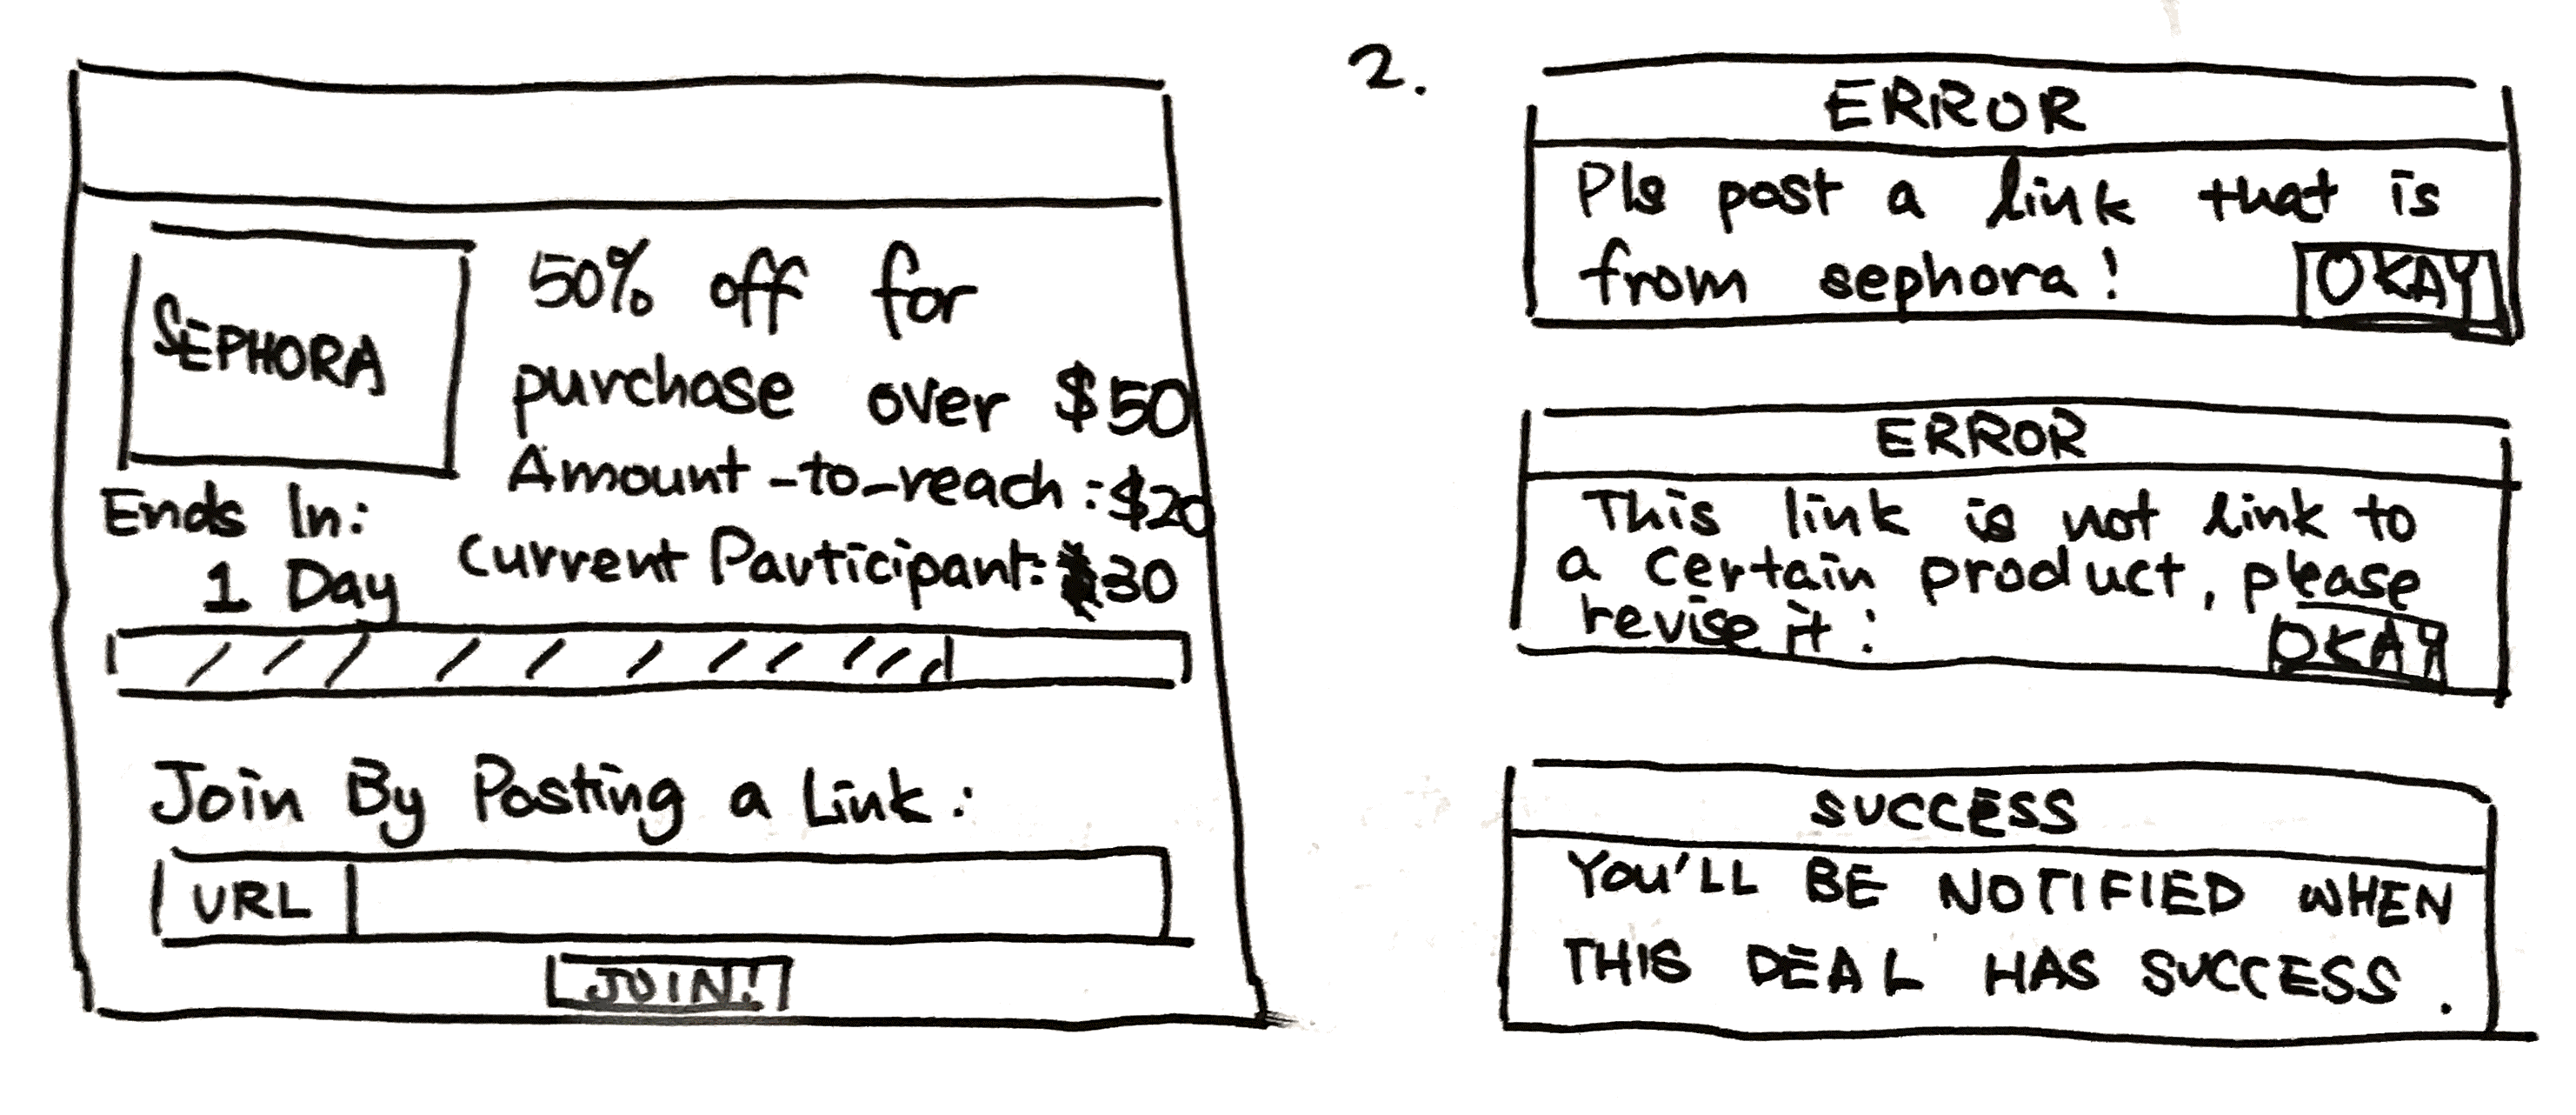 SEPHORA
50% off for
purchase over $50
Amount-to-reach: $20
Current Participant: 30
Ends In:
1 Day
Join By Posting a Link:
URL
JOIN!
2.
ERROR
Pls post a link that is
from sephora!
OKAY
ERROR
This link is not link to
a certain product, please
revise it:
OKAY
SUCCESS
YOU'LL BE NOTIFIED WHEN
THIS DEAL HAS SUCCESS.